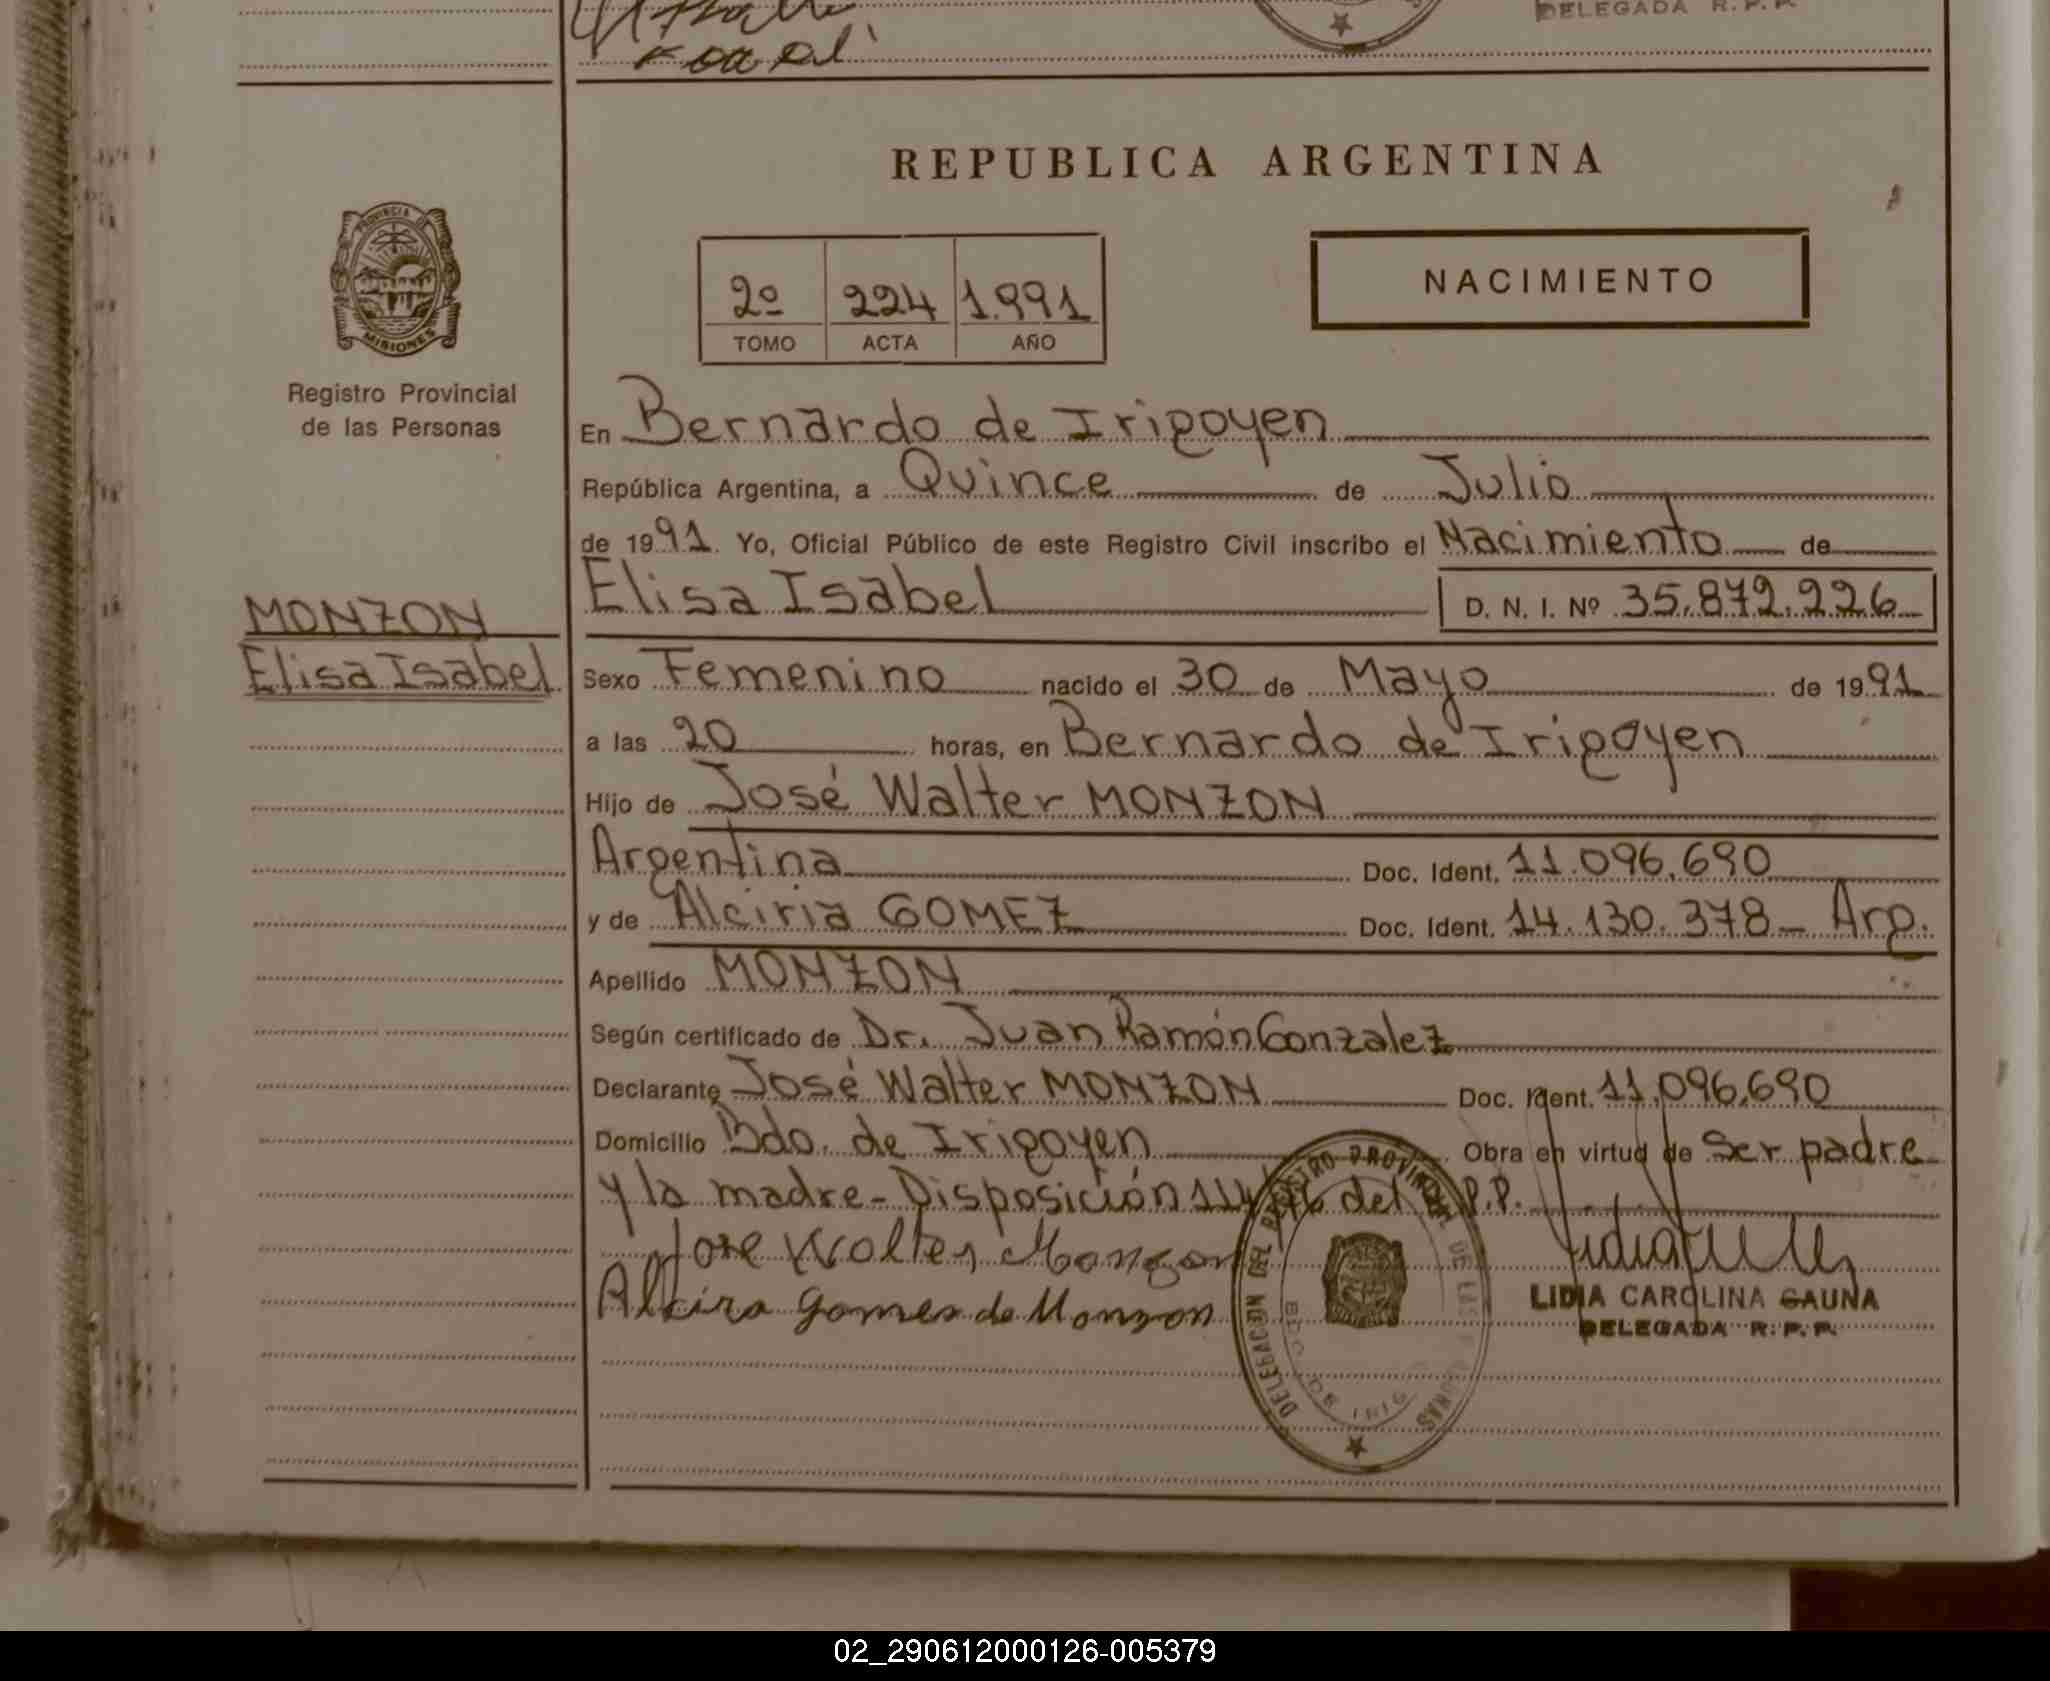 DELEGADA R.P.P.
REPUBLICA ARGENTINA
PROVINCIA DE
MISIONES
Registro Provincial
de las Personas
NACIMIENTO
2º 224 1.991
TOMO ACTA AÑO
En Bernardo de Irigoyen
República Argentina, a Quince de Julio
de 1991. Yo, Oficial Público de este Registro Civil inscribo el Nacimiento de
Elisa Isabel D. N. I. Nº 35.872.226
MONZON
Elisa Isabel
Sexo Femenino nacido el 30 de Mayo de 1991
a las 20 horas, en Bernardo de Irigoyen
Hijo de José Walter MONZON
Argentina Doc. Ident. 11.096.690
y de Alciria GOMEZ Doc. Ident. 14.130.378- Arg.
Apellido MONZON
Según certificado de Dr. Juan Ramón Gonzalez
Declarante José Walter MONZON Doc. Ident. 11.096.690
Domicilio Bdo. de Irigoyen Obra en virtud de Ser padre
y la madre - Disposición 114 del P.P.
Jose Walter Monzon
Alcira Gomez de Monzon
DELEGACION DEL REGISTRO PROVINCIAL DE LAS PERSONAS
BDO. DE IRIG
LIDIA CAROLINA GAUNA
DELEGADA R.P.P.
02_290612000126-005379